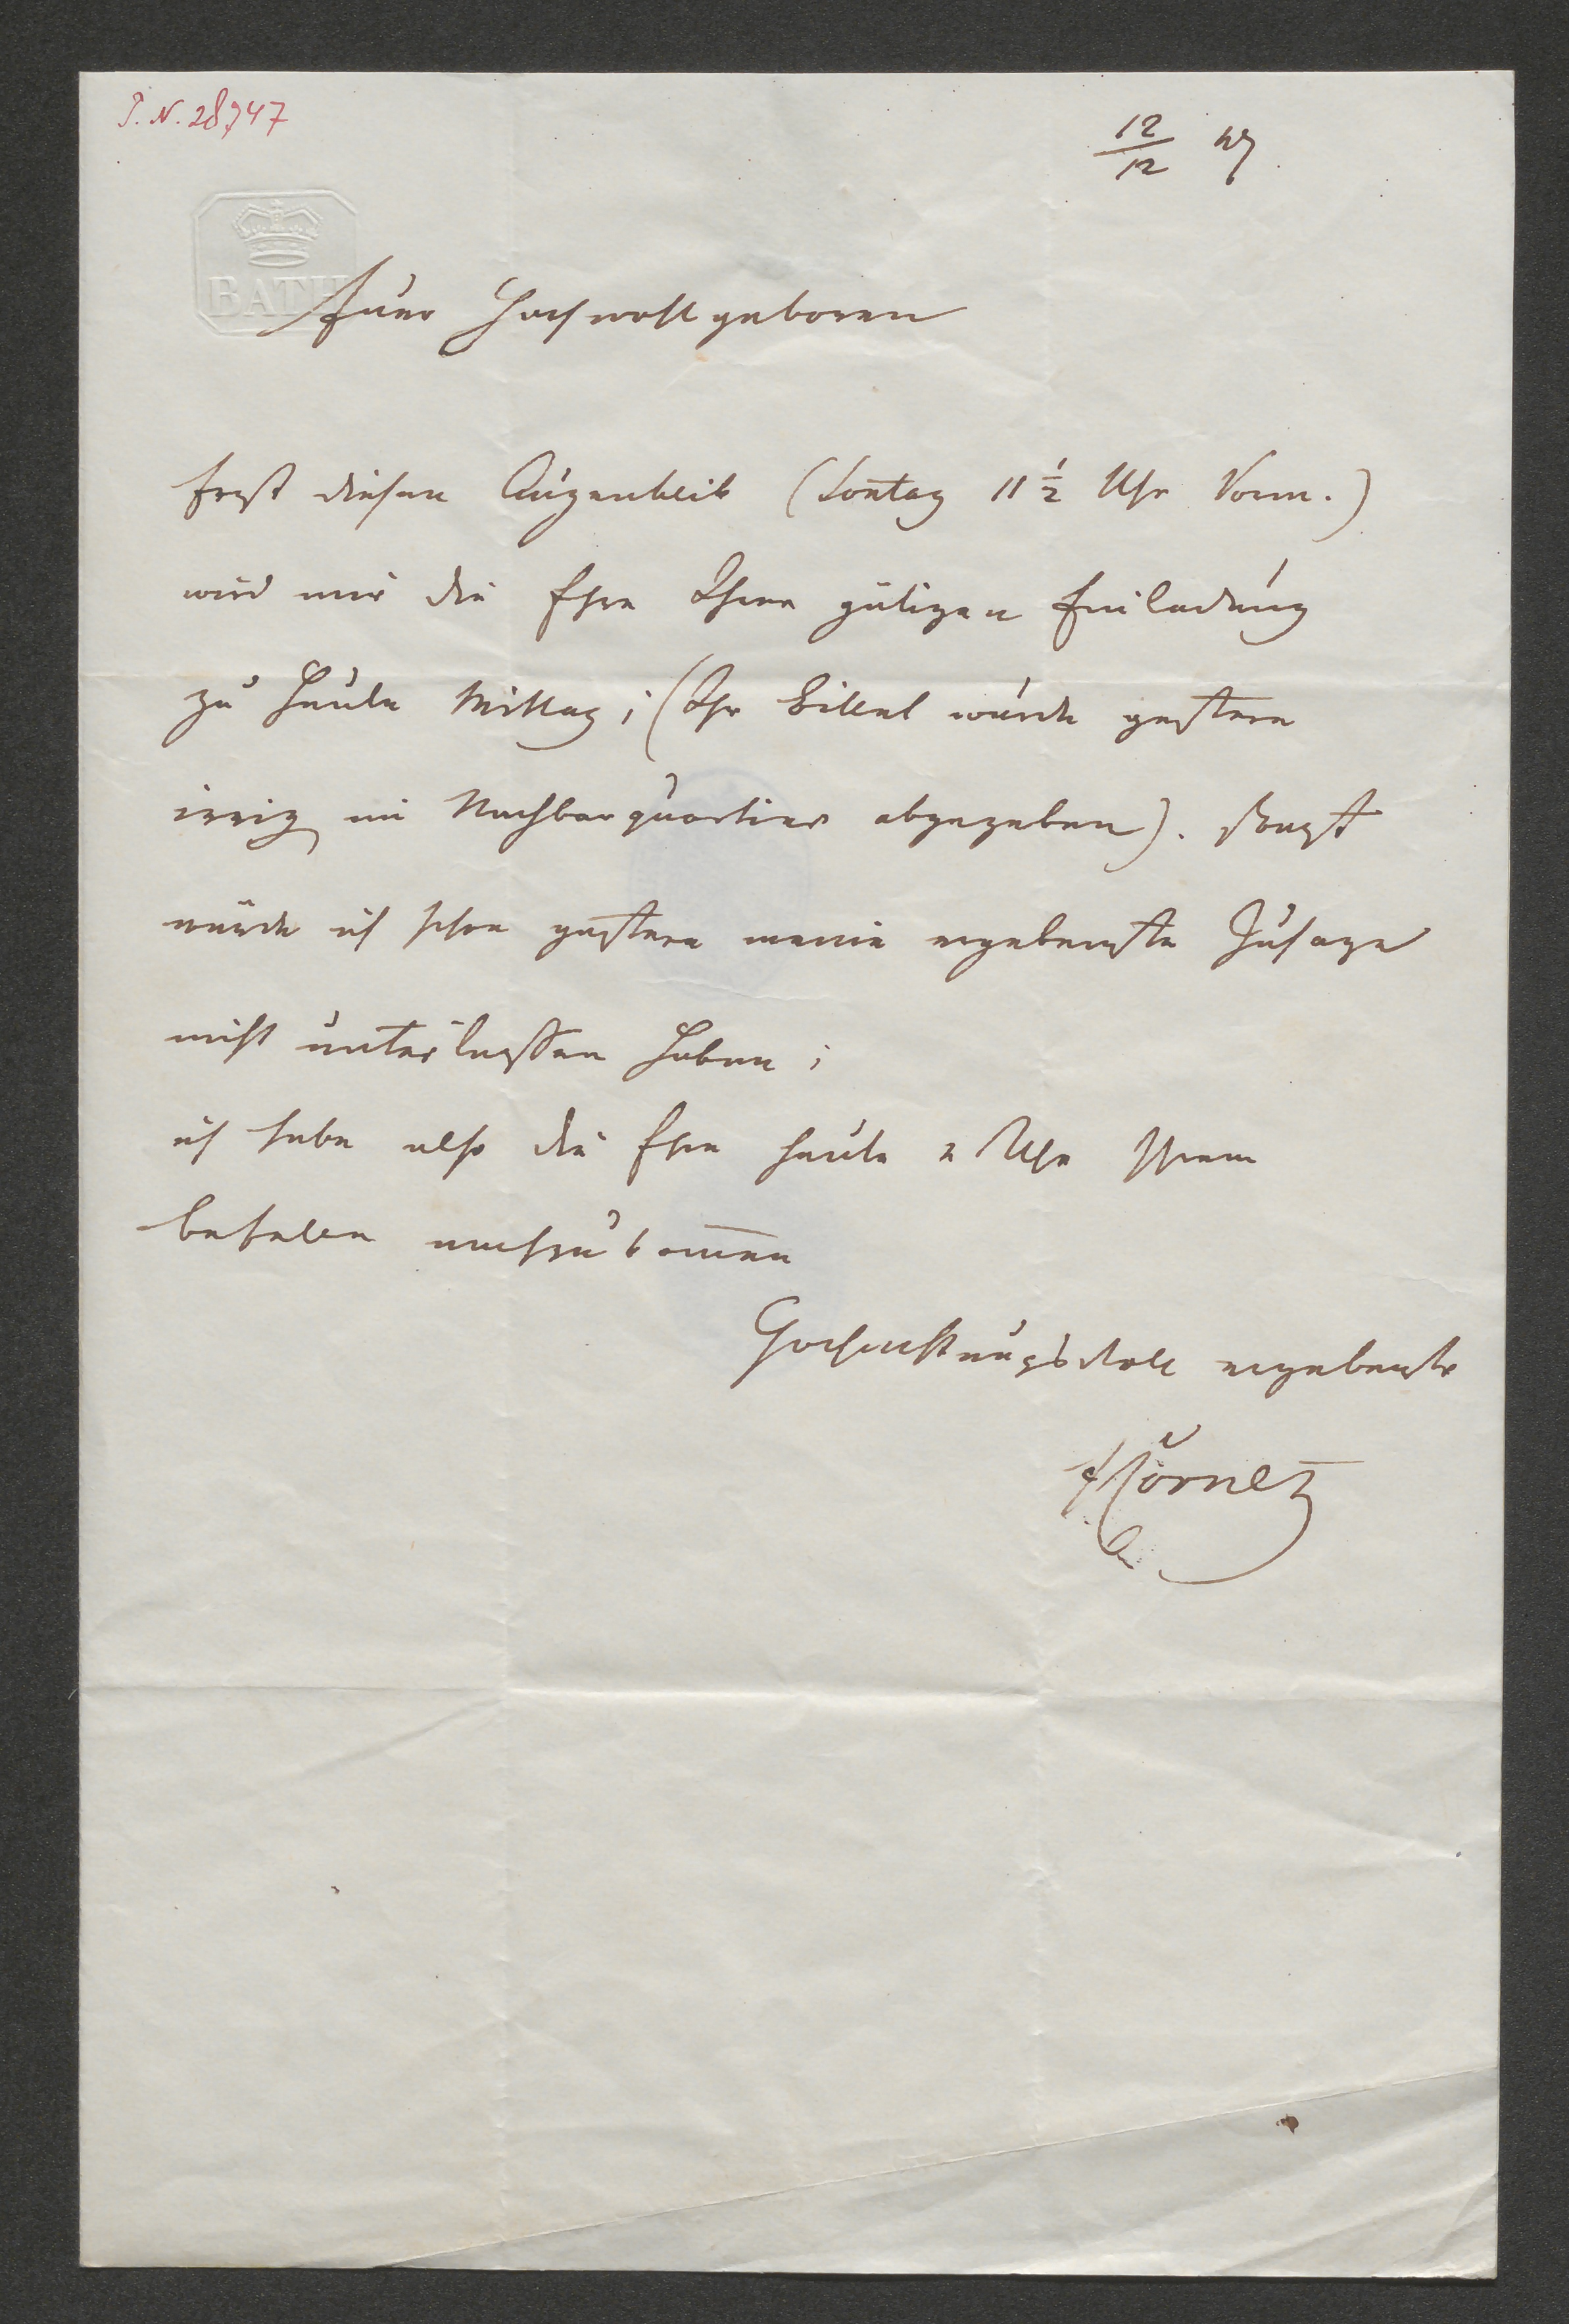 I. N. 28747
12/12 47
BATH
Euer Hochwohlgeboren
Erst diesen Augenblik (Sontag 11 1/2 Uhr Vorm.)
wird mir die Ehre Ihrer gütigen Einladung
zu heute Mittag; (Ihr Billet wurde gestern
irrig im Nachbarquartier abgegeben). Sonst
würde ich schon gestern meine ergebenste Zusage
nicht unterlassen haben;
ich habe also die Ehre heute 2 Uhr Ihrem
befehlen nachzukom̅en
Hochachtungsvoll ergebenster
Cornet